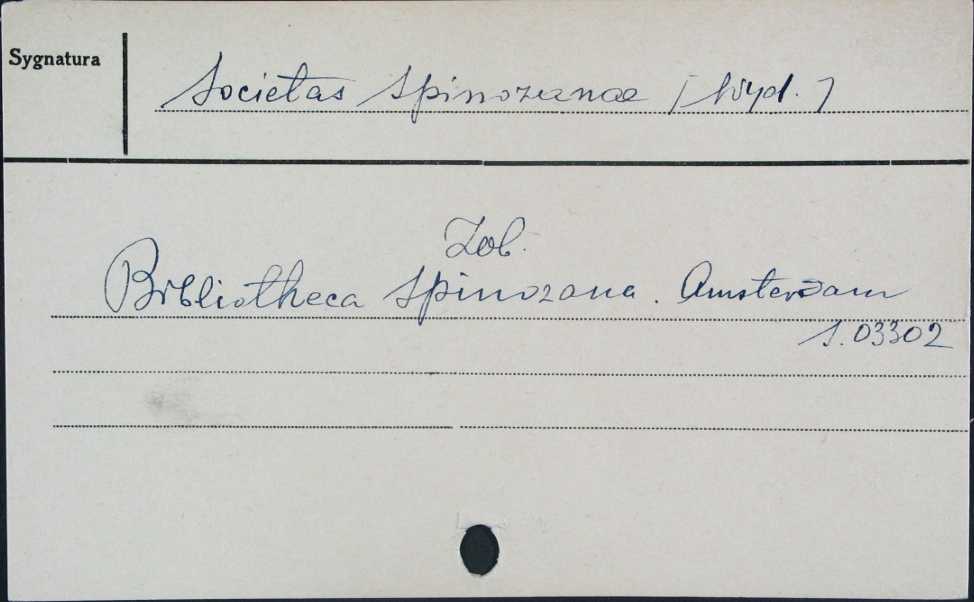 Sygnatura
Societas Spinozanae [Wyd.]
Zob.
Bibliotheca Spinozana. Amsterdam
S.03302